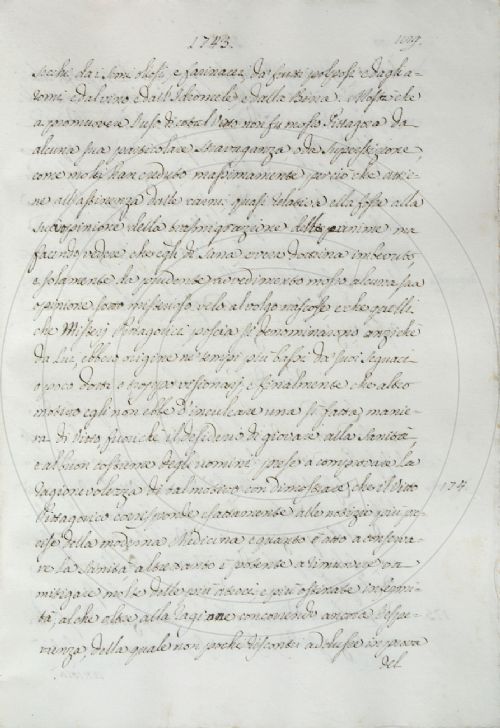 1743. 109.
secchi, da i semi oleosi, e farinacei, da frutti polposi e dagli a-
tomi, e dal vino e dall'Idromele e dalla Birra. Mostrò che
a promuovere l'uso di cotal Vitto non fu mosso Pittagora da
alcuna sua particolare stravaganza o da superstizione,
come molti han creduto massimamente perciò che attie-
ne all'astinenza dalle carni, quasi relativa ella fosse alla
sua opinione della trasmigrazione delle anime ma
facendo vedere che egli di sana era dottrina imbevuto
e solamente da prudente avvedimento mosso alcuna sua
opinione sotto misterioso velo al volgo nascose e che quelli
che Misterj Pittagorici poscia si denominarono anziche
da Lui, ebbero origine ne' tempi più bassi da suoi seguaci
o poco dotti e troppo visionarj, e finalmente che altro
motivo egli non ebbe d'inculcare una sì fatta manie-
ra di Vitto fuorchè il desiderio di giovare alla Sanità,
e al buon costume degli uomini prese a comprovare la
ragionevolezza di tal motivo con dimostrare che il Vitto 174
Pittagorico corrisponde esattamente alle notizie più pre-
cise della moderna Medicina e quanto è atto a conserva-
re la Sanità altrettanto è potente a rimuovere o a
mitigare molte delle più atroci e più ostinate infermi-
tà, al che oltre alla ragione concorrendo ancora l'espe-
rienza, della quale non pochi riscontri addusse in prova
del